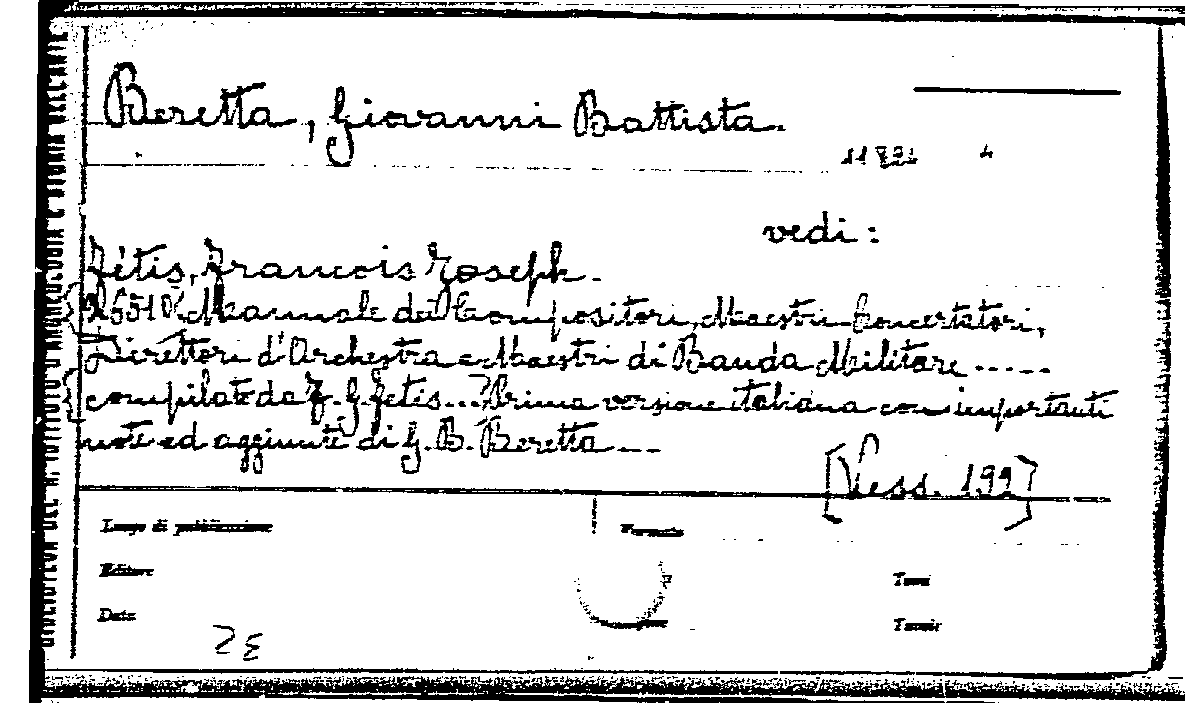 Beretta, Giovanni Battista.
vedi:
Fétis, Francois Joseph.
Manuale dei Compositori, Maestri Concertatori,
Direttori d'Orchestra e Maestri di Banda Militare.....
compilato da F. G. Fétis... Prima versione italiana con importanti
note ed aggiunte di G. B. Beretta....
[Vess. 199]
Luogo di pubblicazione
Formato
Editore
Tomi
Data
BIBLIOTECA DEL R. ISTITUTO D'ARCHEOLOGIA E STORIA DELL'ARTE